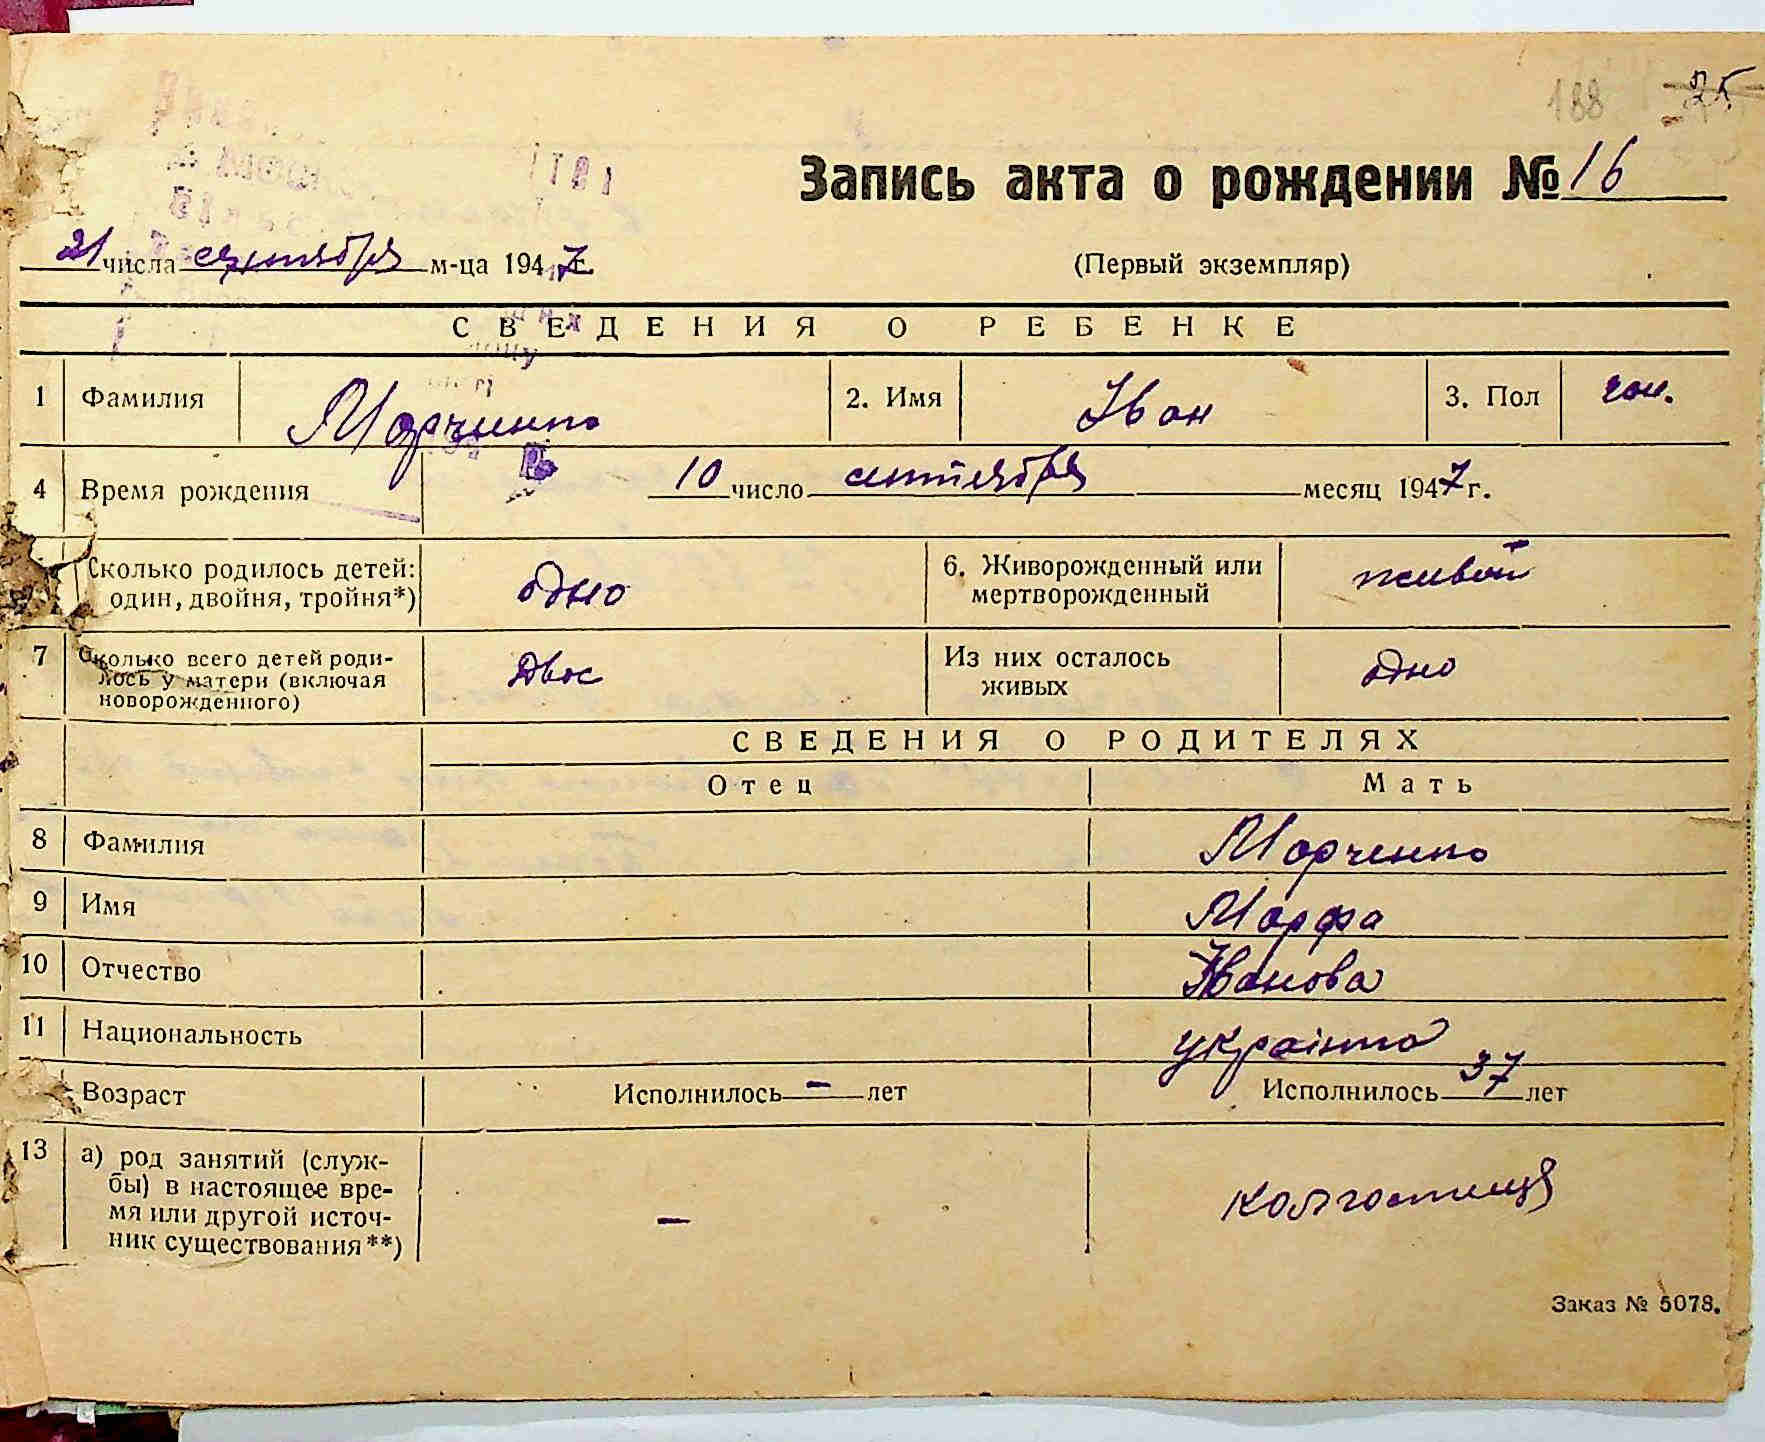 188 25
Запись акта о рождении № 16
21 числа сентября м-ца 1947 г.
(Первый экземпляр)
СВЕДЕНИЯ О РЕБЕНКЕ
1 Фамилия Марченко 2. Имя Іван 3. Пол чол.
4 Время рождения 10 число сентября месяц 1947 г.
Сколько родилось детей: один, двойня, тройня*) одно 6. Живорожденный или мертворожденный живой
7 Сколько всего детей роди-
лось у матери (включая
новорожденного) двое Из них осталось живых одно
СВЕДЕНИЯ О РОДИТЕЛЯХ
Отец Мать
8 Фамилия Марченко
9 Имя Марфа
10 Отчество Іванова
11 Национальность українка
Возраст Исполнилось — лет Исполнилось 37 лет
13 а) род занятий (служ-
бы) в настоящее вре-
мя или другой источ-
ник существования**) — колгостница
Заказ № 5078.